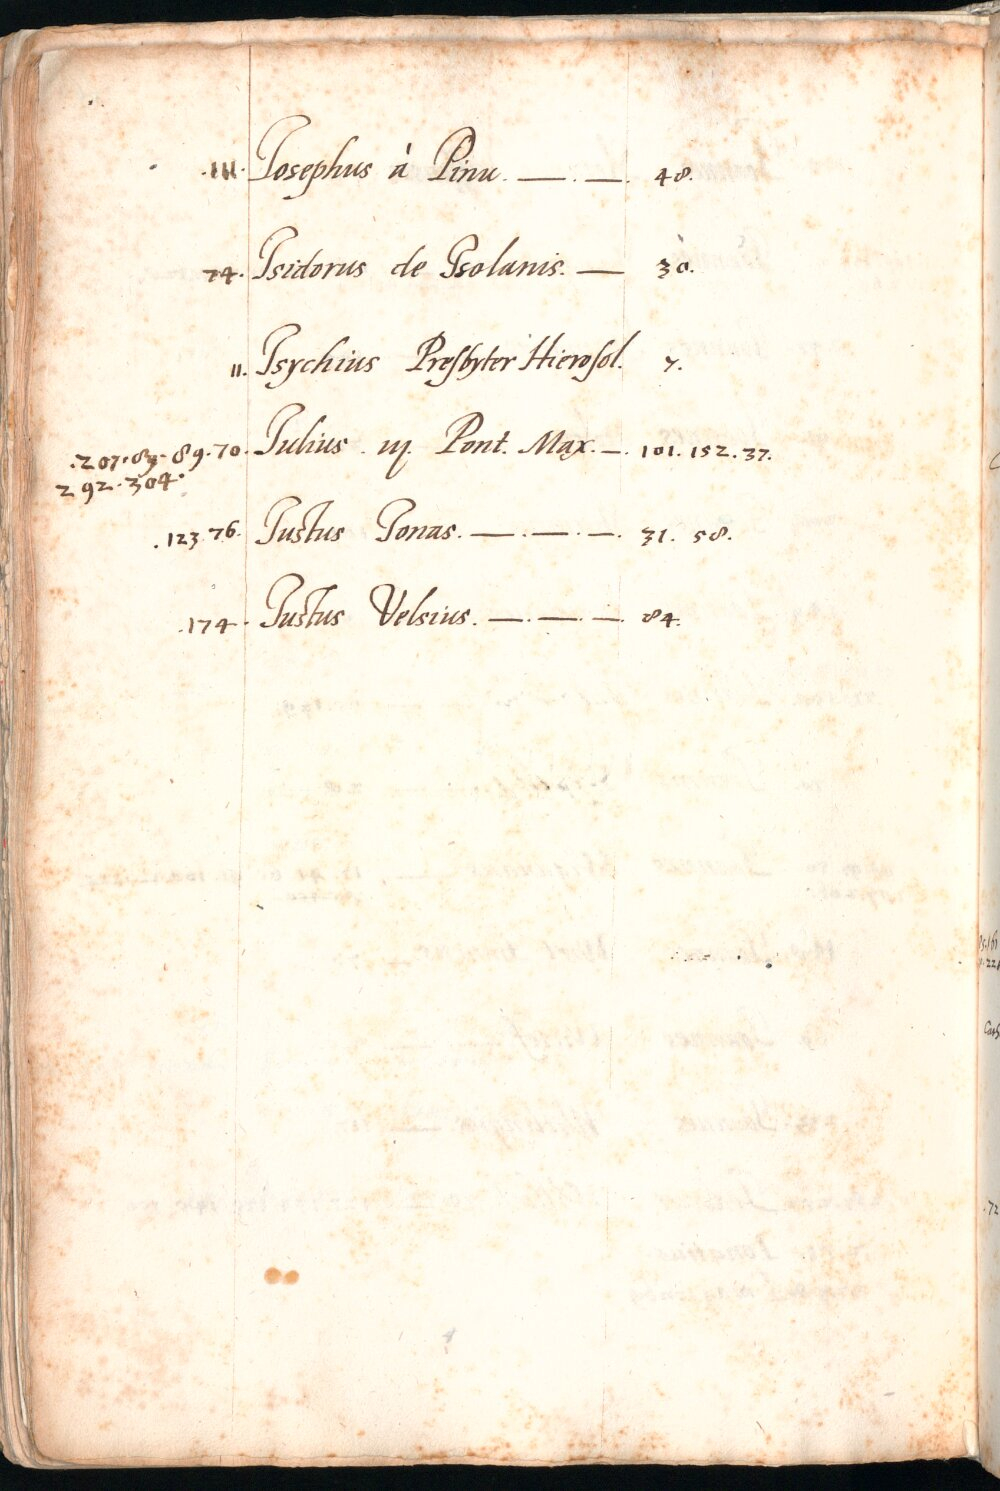 .111. Josephus à Pinu. —.—. 48.
74. Isidorus de Isolanis. — 30.
11. Isychius Presbyter Hierosol. 7.
.207.89.89.70. Julius iij. Pont. Max. —. 101. 152. 37.
292.304.
.123.76. Justus Jonas. —.—.—. 31. 58.
.174. Justus Velsius. —.—.—. 84.